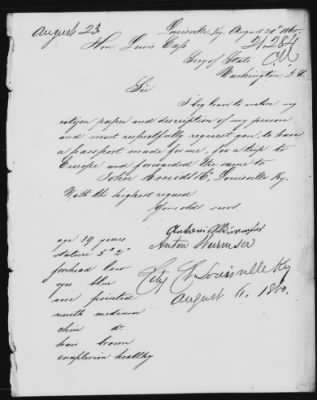 August 23
Louisville Ky. August 20th 1860.
21284
Hon. Lewis Cass
Secy of State
Washington D.C.
Sir
I beg leave to enclose my
citizen paper and description of my person
and most respectfully request you, to have
a passport made for me, for a trip to
Europe and forwarded the same to
John Louisville Ky.
With the highest regard
Yours obdt servt
Anton
age 39 years
stature 5' 2"
forehead low
eyes blue
nose pointed
mouth medium
chin do
hair brown
complexion healthy
City Louisville Ky
August 6. 1860.